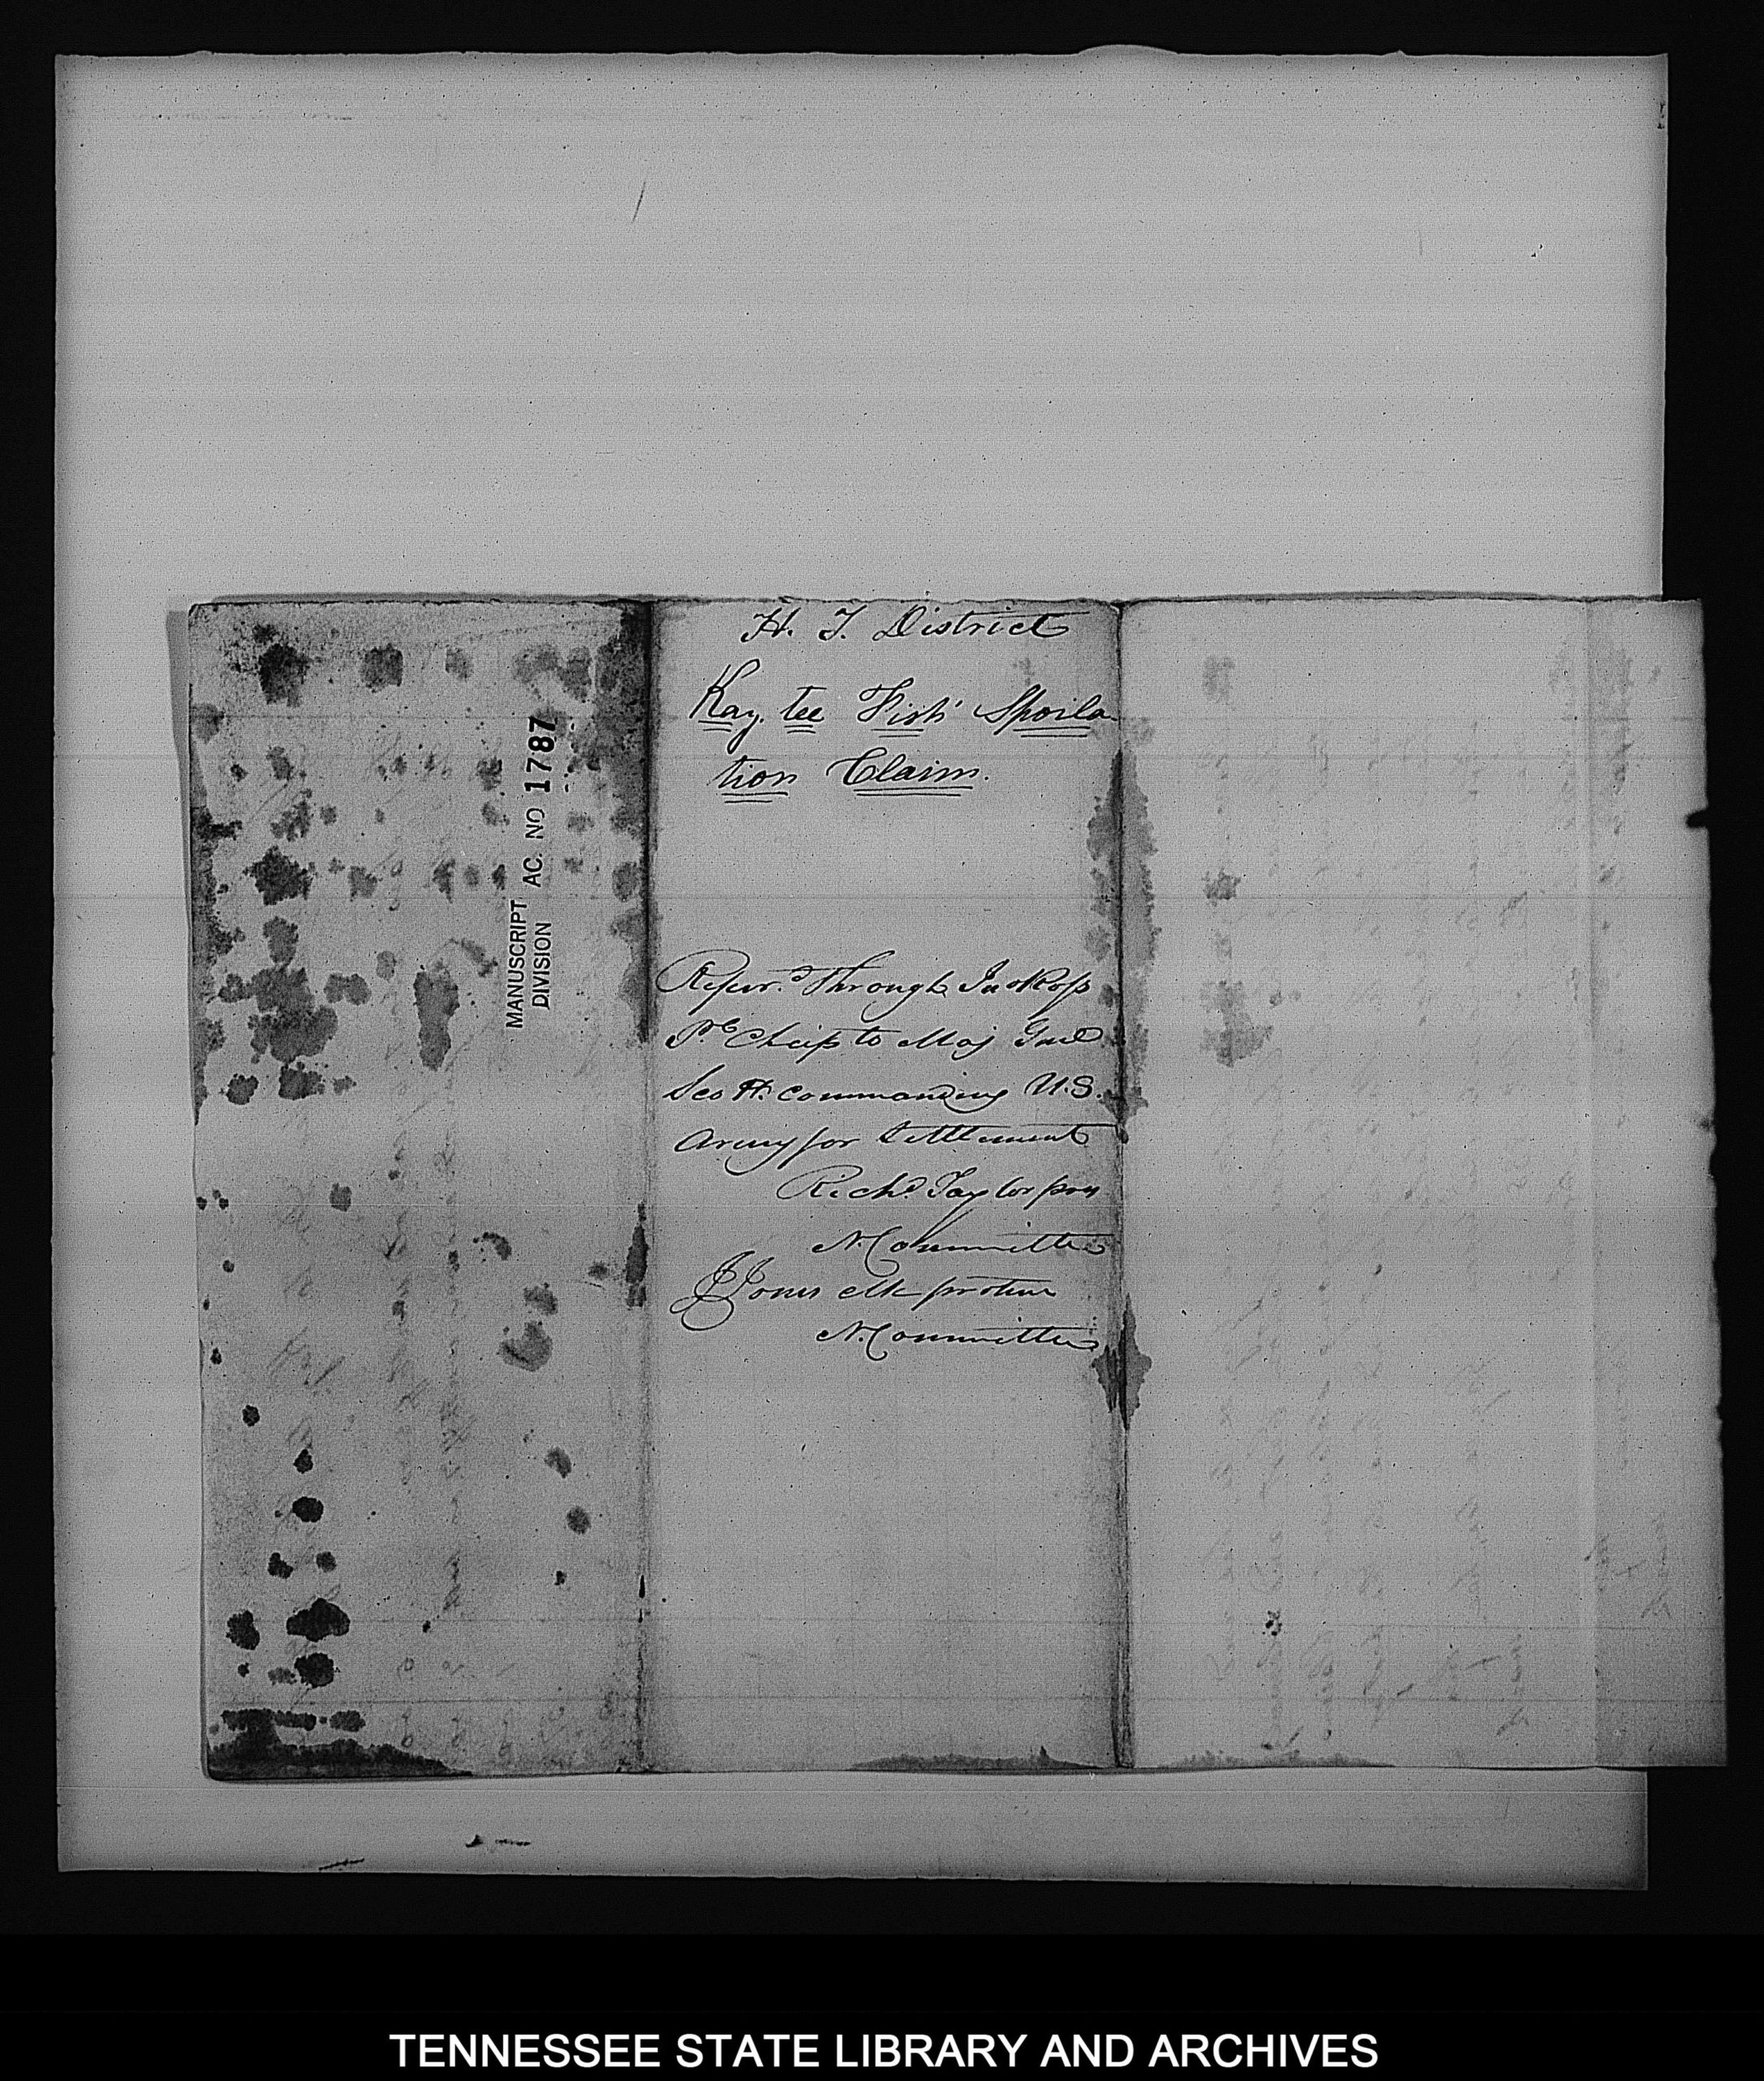 MANUSCRIPT DIVISION AC. NO 1787
H. T. District
Kay. tee Fish' Spoila-
tion Claim.
Refer.d Through Jno Ross
Pr Chief to Maj Genl
Scott commanding U.S.
Army for settlement
Richd Taylor pres
N. Committee
J Jones clk protem
N. Committee
TENNESSEE STATE LIBRARY AND ARCHIVES